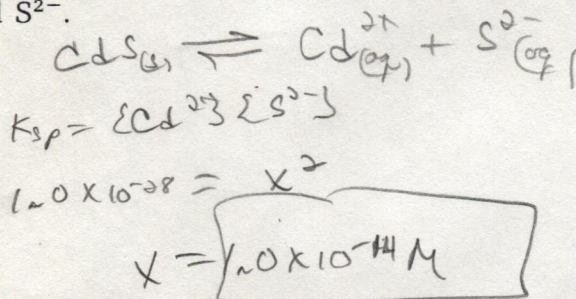 S²⁻.
CdS(s) ⇌ Cd²⁺(aq) + S²⁻(aq)
Ksp = {Cd²⁺} {S²⁻}
1.0 X 10⁻²⁸ = X²
X = 1.0 X 10⁻¹⁴ M